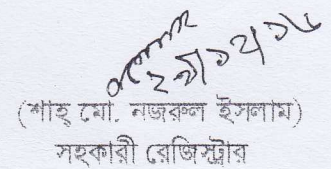 (শাহ্ মো. নজরুল ইসলাম)
সহকারী রেজিস্ট্রার